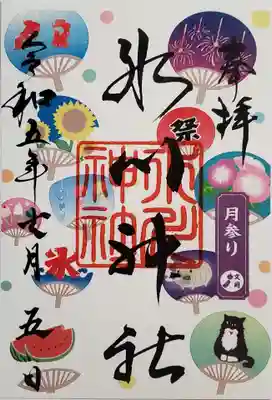 奉拝
月参り
文月
氷川神社
氷川神社
祭
氷
令和五年七月五日